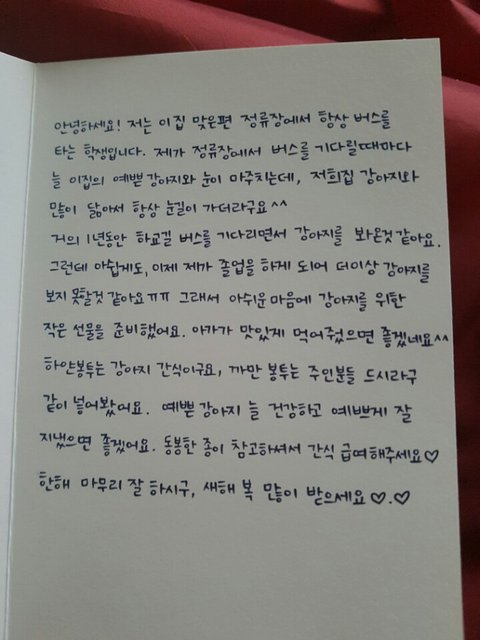 안녕하세요! 저는 이집 맞은편 정류장에서 항상 버스를
타는 학생입니다. 제가 정류장에서 버스를 기다릴때마다
늘 이집의 예쁜강아지와 눈이 마주치는데, 저희집 강아지와
많이 닮아서 항상 눈길이 가더라구요^^
거의 1년동안 하교길 버스를 기다리면서 강아지를 봐온것같아요.
그런데 아쉽게도, 이제 제가 졸업을 하게 되어 더이상 강아지를
보지 못할것 같아요ㅠㅠ 그래서 아쉬운 마음에 강아지를 위한
작은 선물을 준비했어요. 아가가 맛있게 먹어줬으면 좋겠네요^^
하얀봉투는 강아지 간식이구요, 까만 봉투는 주인분들 드시라구
같이 넣어봤어요. 예쁜 강아지 늘 건강하고 예쁘게 잘
지냈으면 좋겠어요. 동봉한 종이 참고하셔서 간식 급여해주세요♡
한해 마무리 잘 하시구, 새해 복 많이 받으세요♡.♡